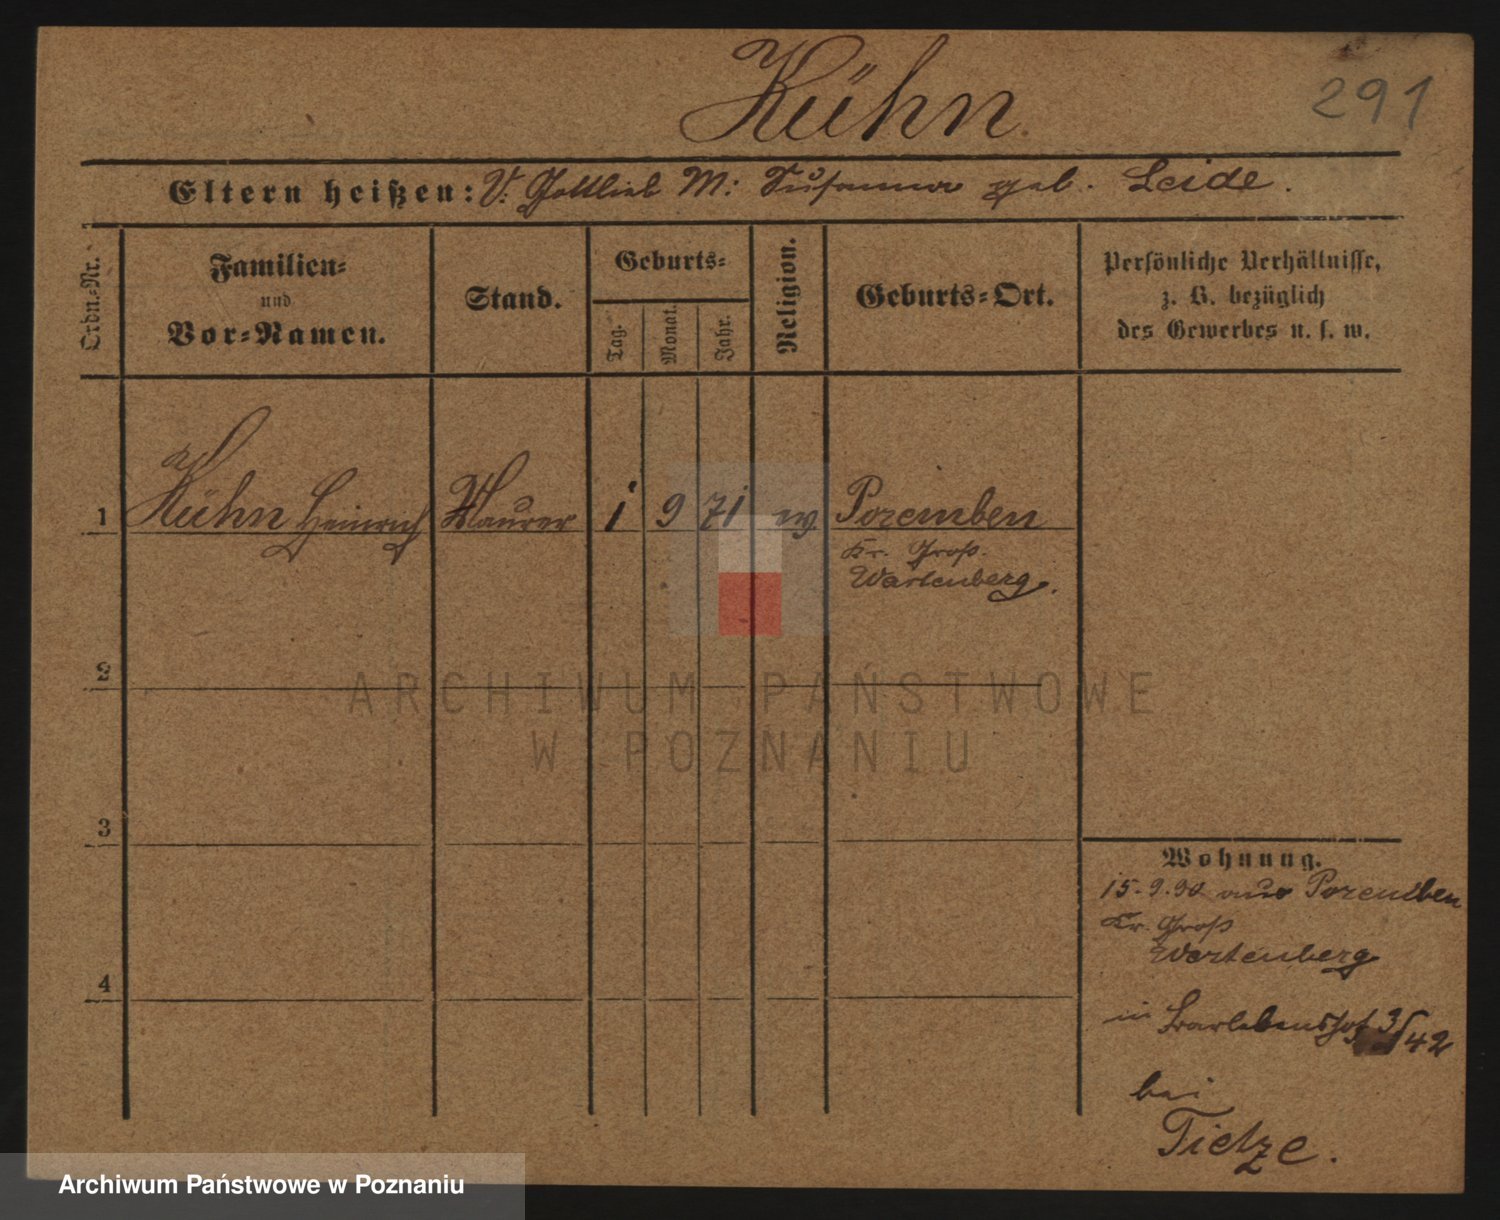 Kühn
291
Eltern heißen: V: Gottlieb M: Susanna geb. Leide.
Ordn.-Nr.
Familien-
und
Vor-Namen.
Stand.
Geburts-
Tag.
Monat.
Jahr.
Religion.
Geburts-Ort.
Persönliche Verhältnisse,
z. B. bezüglich
des Gewerbes u. s. w.
1 Kühn Heinrich Maurer 1 9 71 ev Poremben
Kr. Groß.
Wartenberg.
2
ARCHIWUM PAŃSTWOWE
W POZNANIU
3
Wohnung.
15.9.90 aus Poremben
Kr. Groß
Wartenberg
4
in 3/42
bei
Tietze.
Archiwum Państwowe w Poznaniu